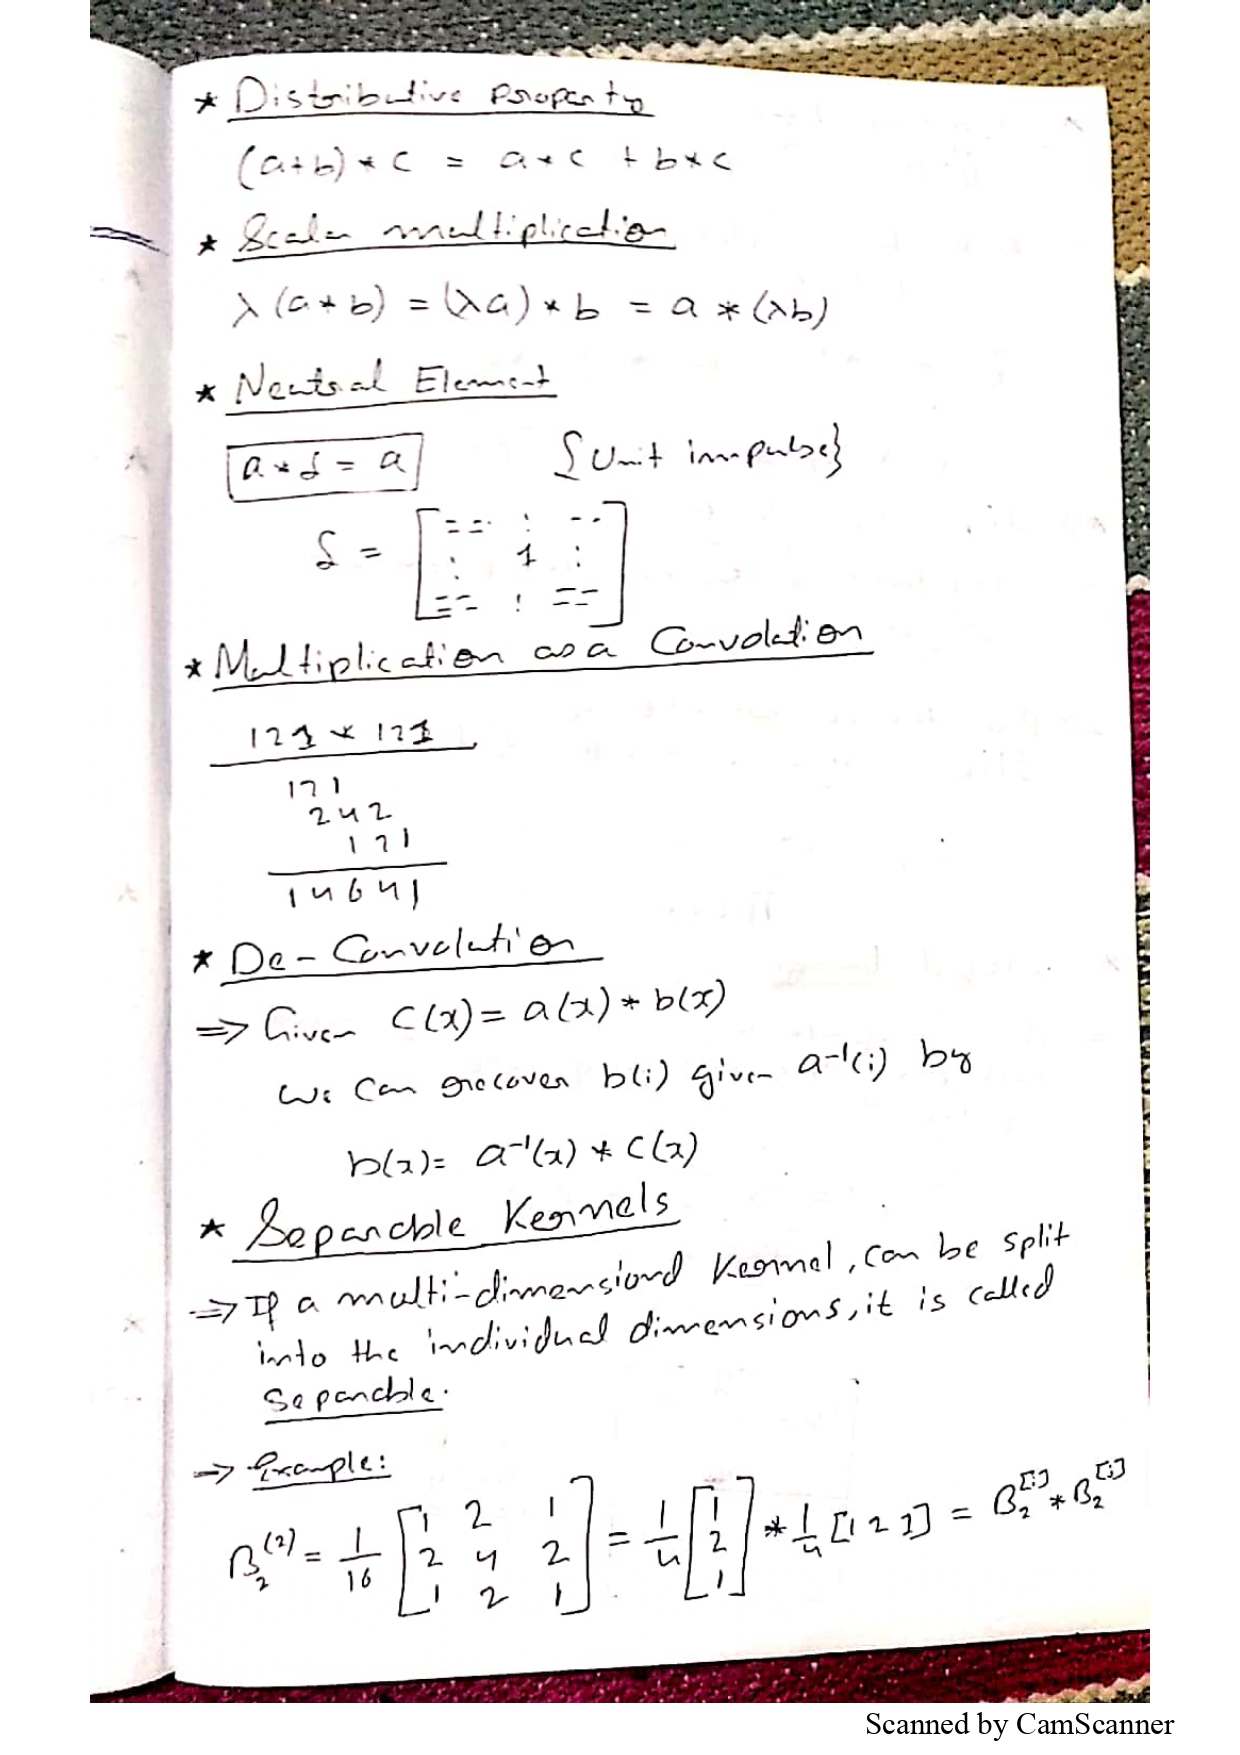 * Distributive property
(a+b) * c = a * c + b * c
* Scalar multiplication
λ (a * b) = (λa) * b = a * (λb)
* Neutral Element
a * δ = a {Unit impulse}
δ = [ == : --
: 1 :
== : == ]
* Multiplication as a Convolution
121 * 121
121
242
121
14641
* De-Convolution
⇒ Given c(x) = a(x) * b(x)
we can recover b(i) given a⁻¹(i) by
b(x) = a⁻¹(x) * c(x)
* Separable Kernels
⇒ If a multi-dimensional Kernel, can be split
into the individual dimensions, it is called
Separable.
⇒ Example:
B₂⁽²⁾ = 1/16 [1 2 1; 2 4 2; 1 2 1] = 1/4 [1; 2; 1] * 1/4 [1 2 1] = B₂^[i] * B₂^[j]
Scanned by CamScanner